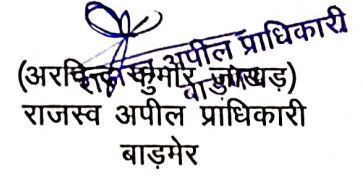 राजस्व अपील प्राधिकारी
बाड़मेर
(अरविन्द कुमार जाखड़)
राजस्व अपील प्राधिकारी
बाड़मेर